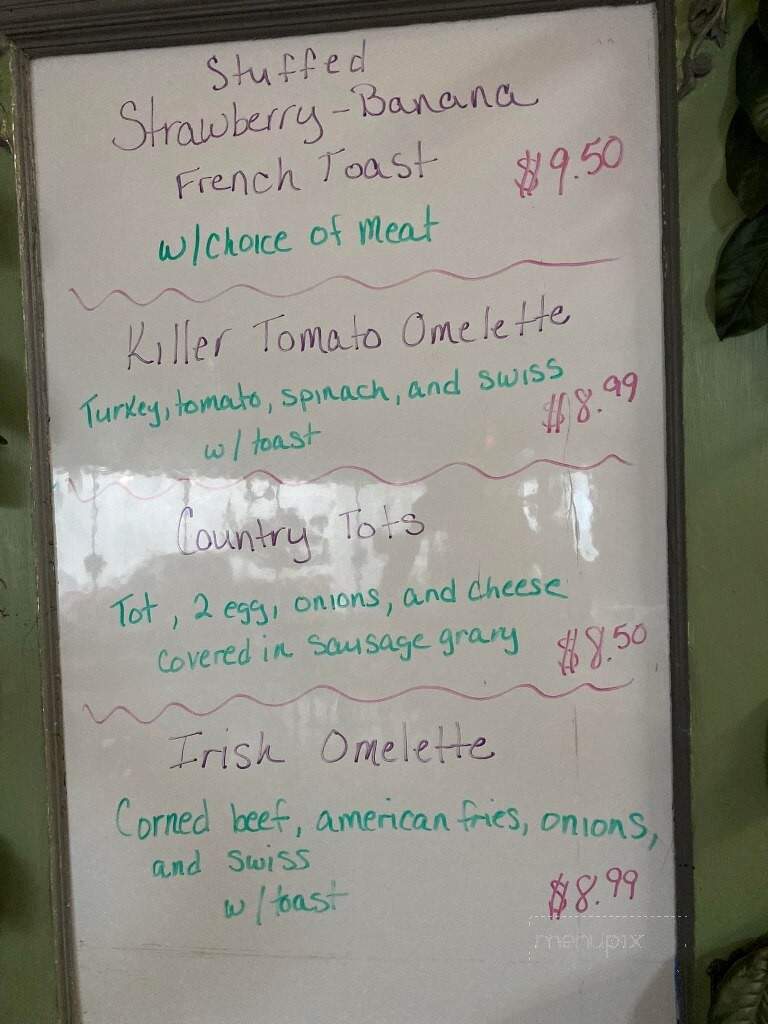 Stuffed
Strawberry-Banana
French Toast $9.50
w/choice of meat
Killer Tomato Omelette
Turkey, tomato, spinach, and swiss
w/toast $8.99
Country Tots
Tot, 2 egg, onions, and cheese
covered in sausage gravy $8.50
Irish Omelette
Corned beef, american fries, onions,
and swiss
w/toast $8.99
menupix